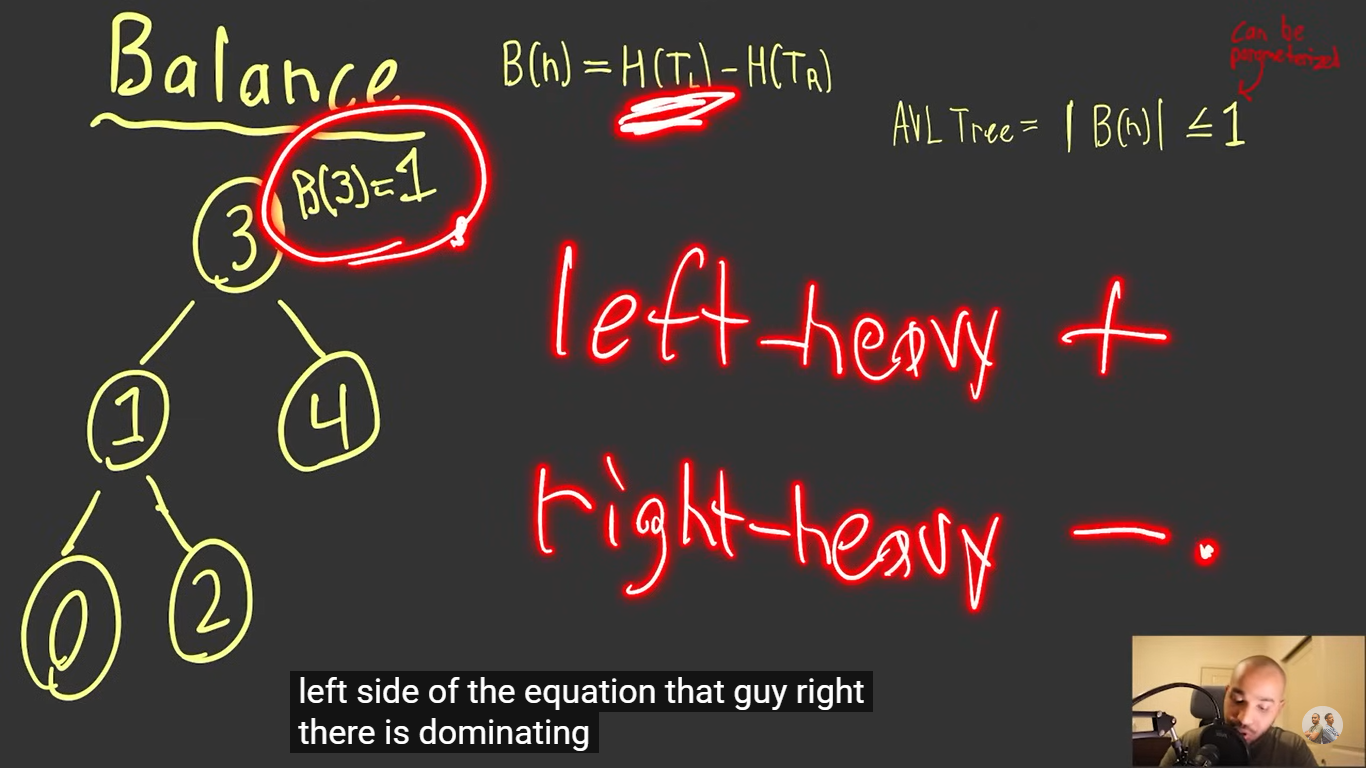 Balance
B(n) = H(T_L) - H(T_R)
can be
parametrized
AVL Tree = | B(n) | ≤ 1
B(3)=1
3
left-heavy +
1
4
right-heavy -
0
2
left side of the equation that guy right
there is dominating